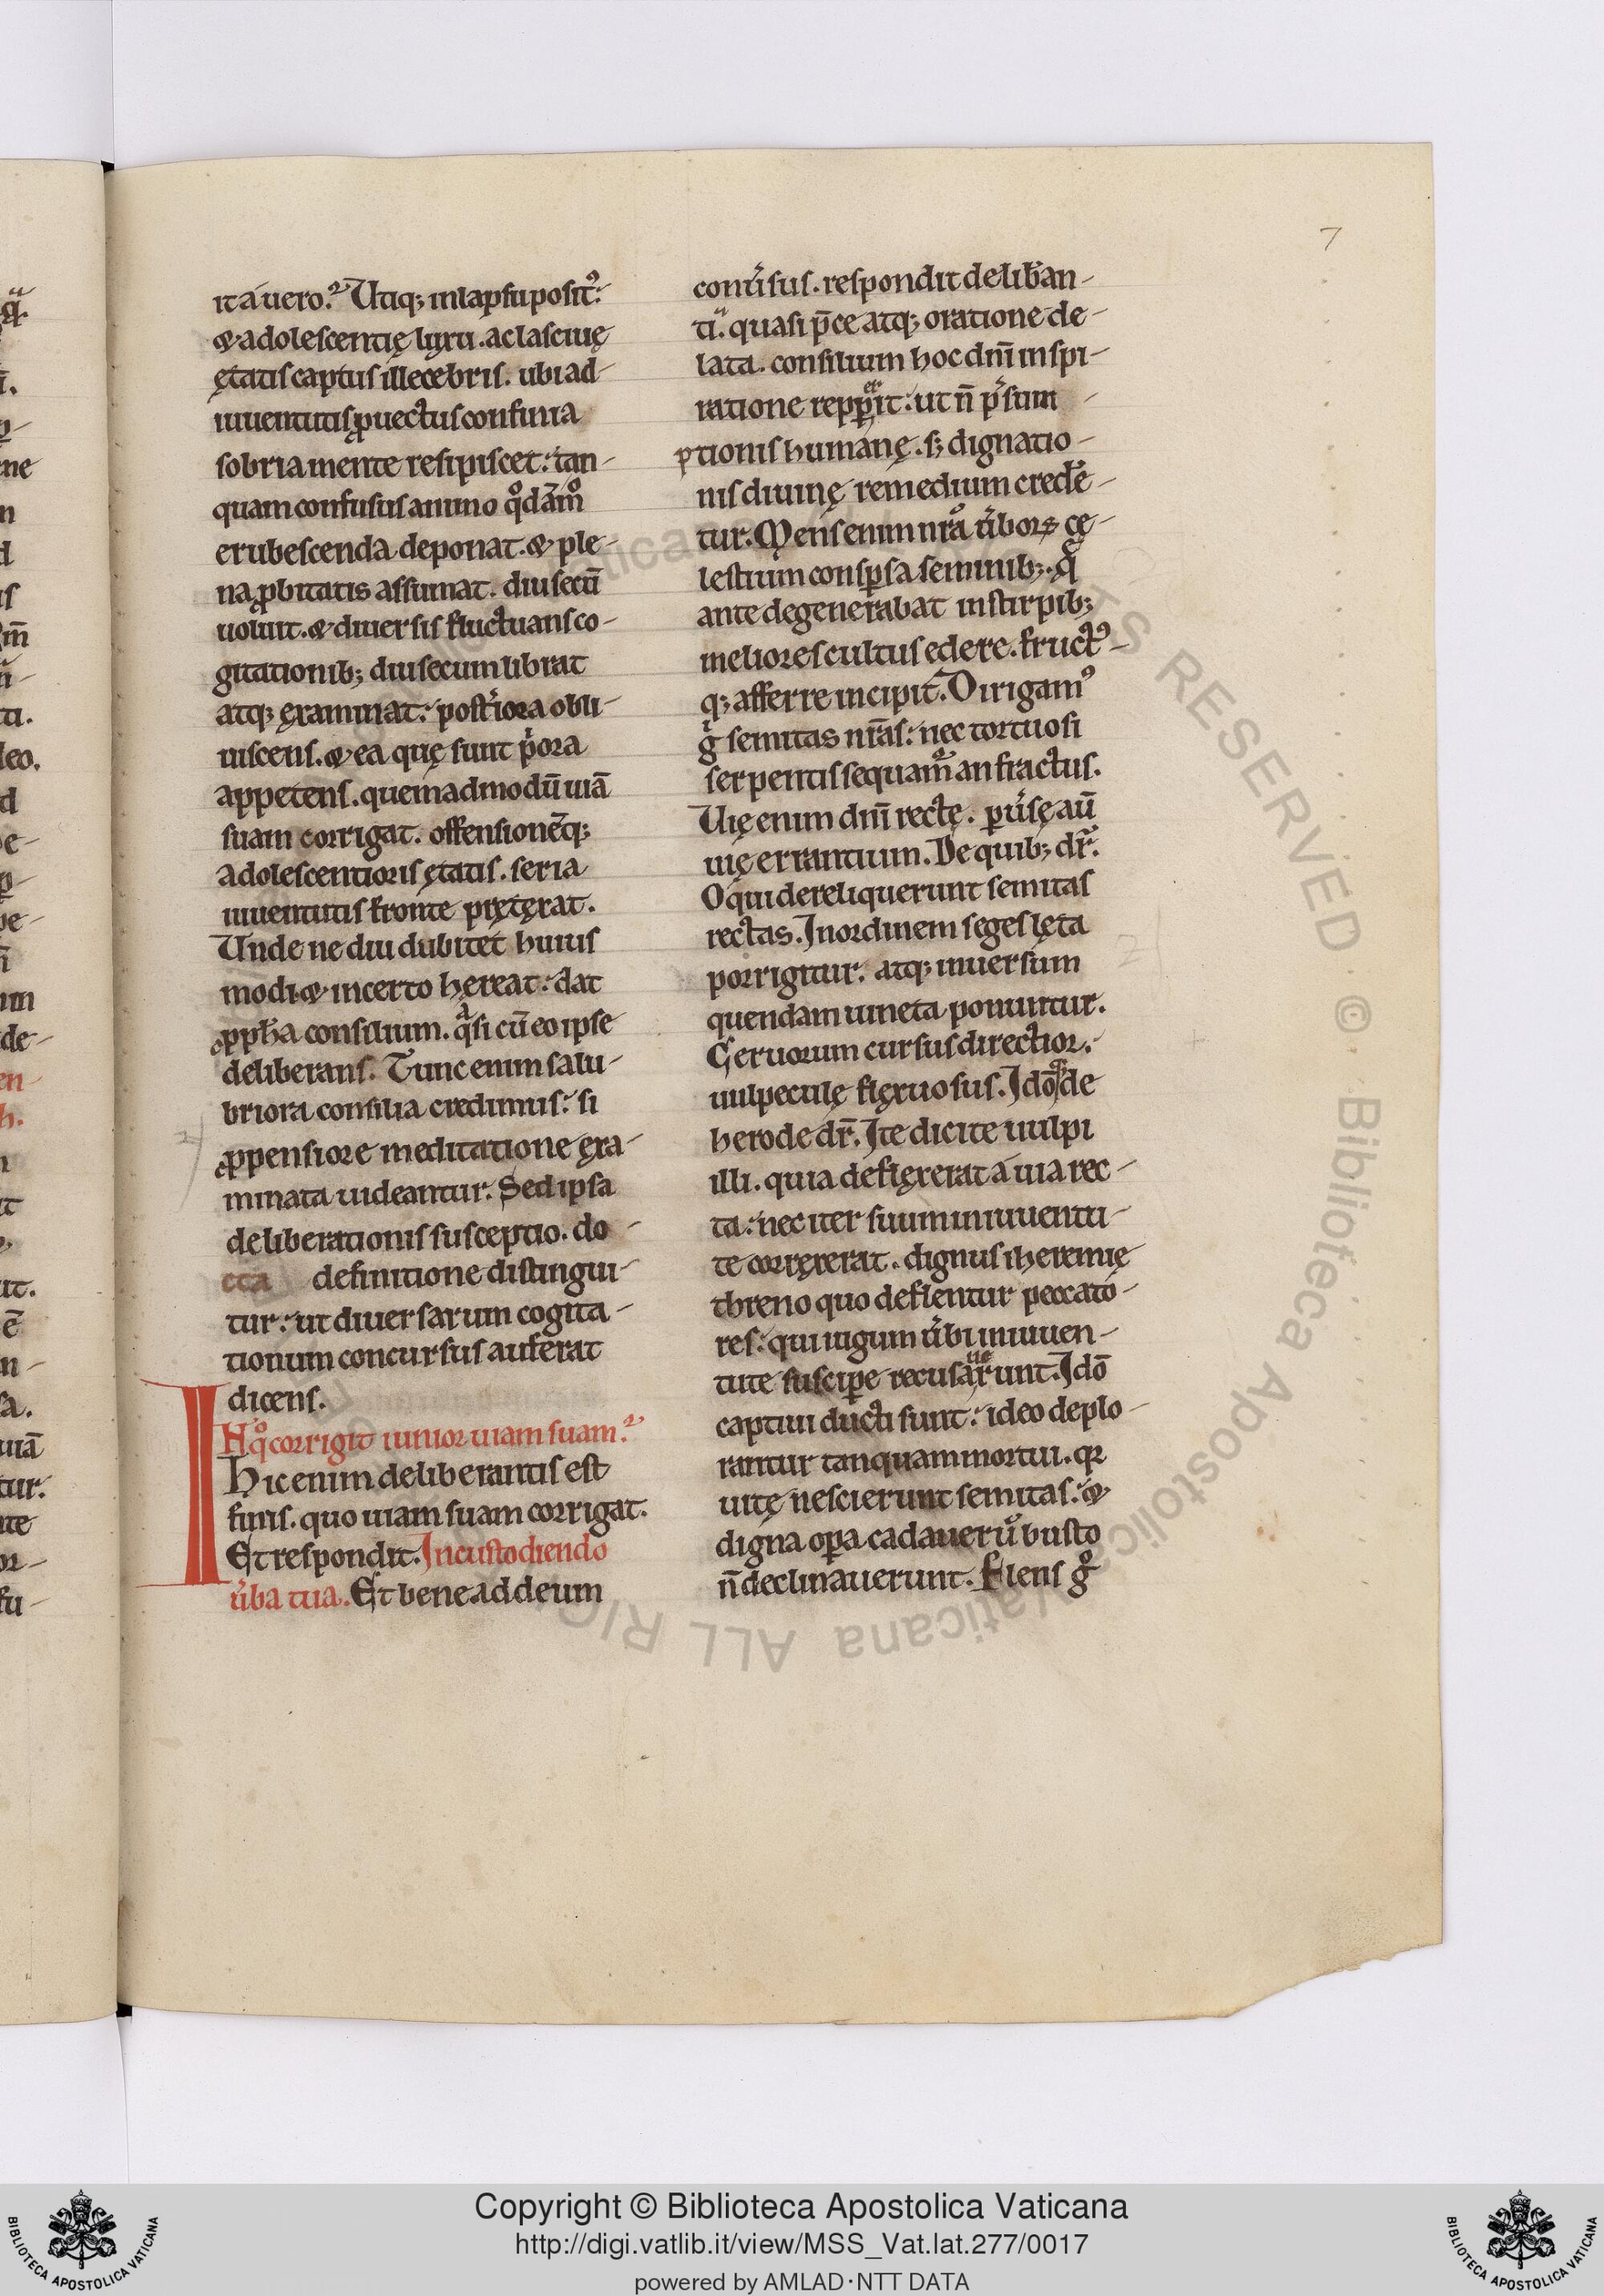 7
ita uero. Utiq; in lapsu posit᾽
& adolescentię luxu. ac lasciuę
ętatis captus illecebris. ubi ad-
iuuentutis ꝓuectus confinia
sobria mente resipiscet: tan-
quam confusus animo qͦdāmͦ
erubescenda deponat. & ple-
na ꝓbitatis assumat. diu secū
uoluit. & diuersis fluctuans co-
gitationib; diu secum librat
atq; ęxaminat: post͛iora obli-
uiscens. & ea quę sunt pͥora
appetens. quemadmodū uiā
suam corrigat. offensionēq;
adolescentioris ętatis. seria
iuuentutis fronte pręterat.
Unde ne diu dubitet huius
modi & incerto hereat: dat
ꝓpħa consilium. qͣsi cū eo ipse
deliberans. Tunc enim salu-
briora consilia credimus: si
ꝓpensiore meditatione ęxa-
minata uideantur. Sed ipsa
deliberationis susceptio. do-
cta definitione distingui-
tur: ut diuersarum cogita-
tionum concursus auferat
dicens.
IN qͦ corrigit iunior uiam suam.
Hic enim deliberantis est
finis. quo uiam suam corrigat.
Et respondit. In custodiendo
u͛ba tua. Et bene ad deum
conu͛sus. respondit delib͛an-
ti. quasi p̄ce atq; oratione de-
lata. consilium hoc dn̄i inspi-
ratione repperit: ut n̄ p͛sum
ptionis humanę. s; dignatio-
nis diuinę remedium crede͛-
tur. Mens enim nr̄a u͛boꝝ cę-
lestium consꝑsa seminib;. qͣ
ante degenerabat in stirpib;
meliores cultus edere. fruct᾽-
q; afferre incipit. Dirigam᾽
gͥ semitas nr̄as: nec tortuosi
serpentis sequamur anfractus.
Uię enim dn̄i rectę. pu͛sę aū
uię errantium. De quib; dr̄.
O qui dereliquerunt semitas
rectas. In ordinem seges lęta
porrigitur. atq; in uersum
quendam uineta ponuntur.
Ceruorum cursus directior.
uulpeculę flęxuosus. Idō & de
herode dr̄. Ite dicite uulpi
illi. quia deflęxerat a uia rec-
ta: nec iter suum in iuuentu-
te corręxerat. dignus iheremię
threno quo deflentur peccato-
res: qui iugum u͛bi in iuuen-
tute susciꝑe recusauerunt. Idō
captiui ducti sunt: ideo deplo-
rantur tanquam mortui. qꝛ
uitę nescierunt semitas: &
digna oꝑa cadauerū busto
n̄ declinauerunt. Flens gͦ
Copyright © Biblioteca Apostolica Vaticana
http://digi.vatlib.it/view/MSS_Vat.lat.277/0017
powered by AMLAD·NTT DATA
BIBLIOTECA APOSTOLICA VATICANA
BIBLIOTECA APOSTOLICA VATICANA